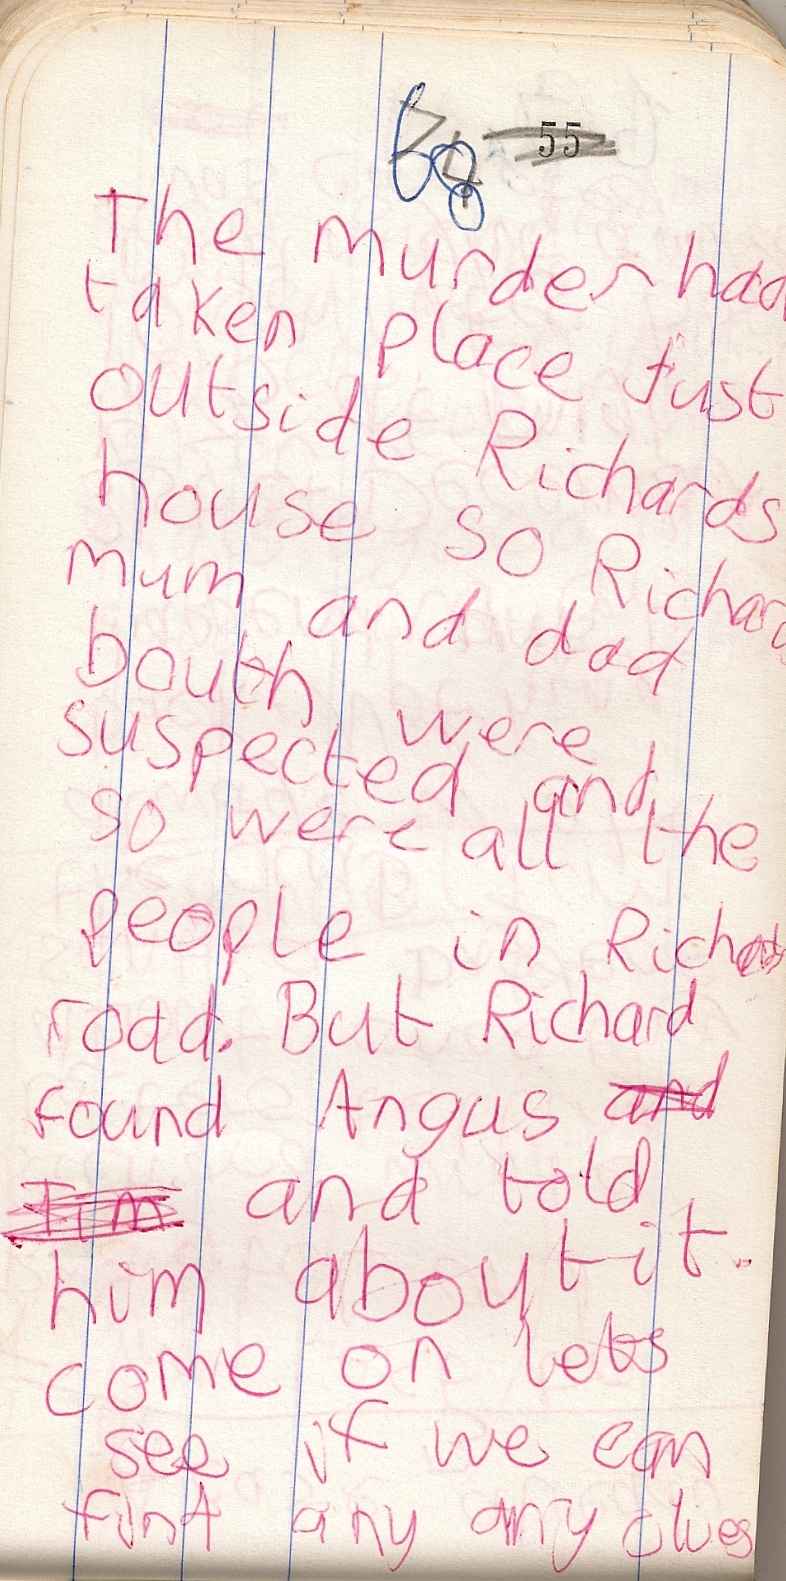 68 55
The murder had
taken place just
outside Richards
house so Richard
mum and dad
bouth were
suspected and
so were all the
people in Richards
road. But Richard
found Angus and
Tim and told
him about it.
come on lets
see if we can
fint any any clues